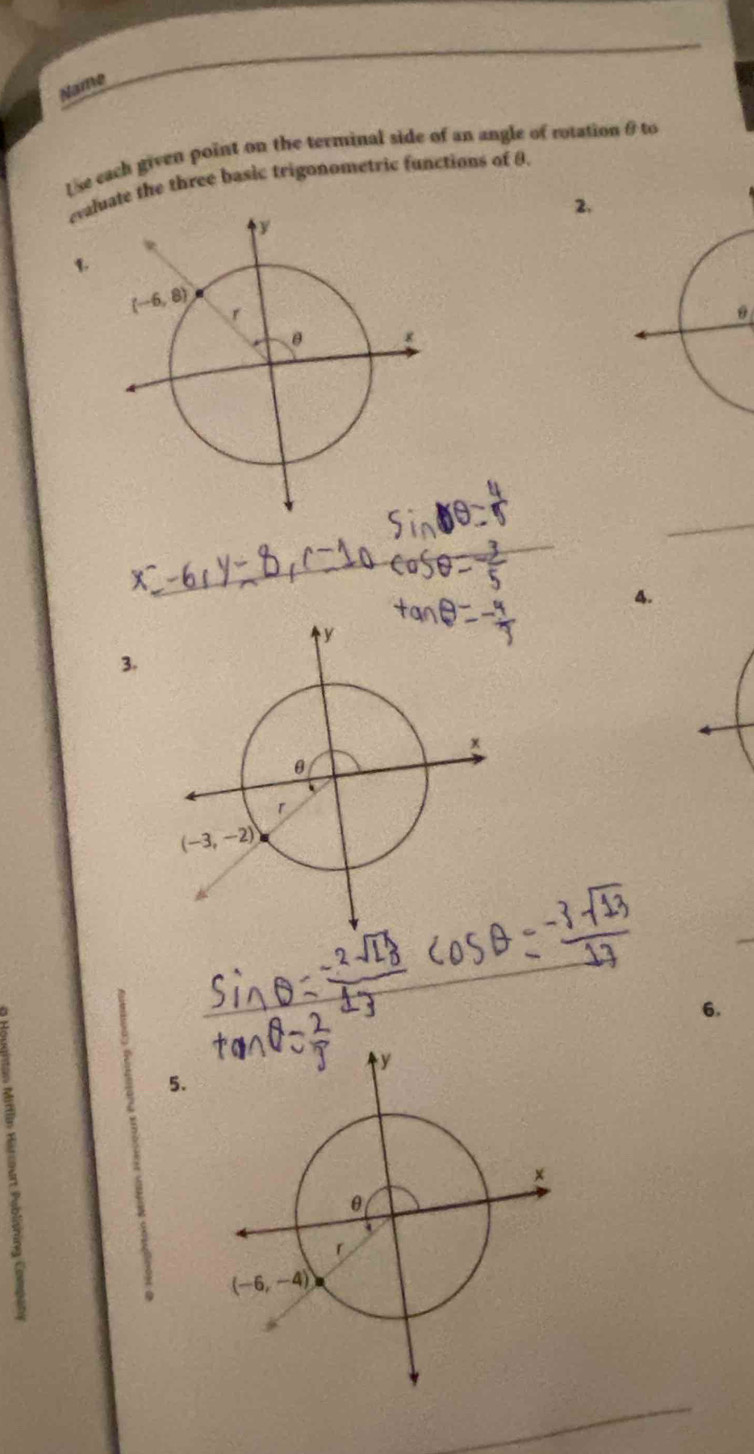 Name
Use each given point on the terminal side of an angle of rotation θ to
evaluate the three basic trigonometric functions of θ.
1.
y
(−6, 8)
r
θ
x
2.
θ
x=-6, y=8, r=10
sinθ=4/5
cosθ=-3/5
tanθ=-4/3
3.
y
x
θ
r
(−3, −2)
4.
sinθ=-2√13/13 cosθ=-3√13/13
tanθ=2/3
5.
y
x
θ
r
(−6, −4)
6.
© Houghton Mifflin Harcourt Publishing Company